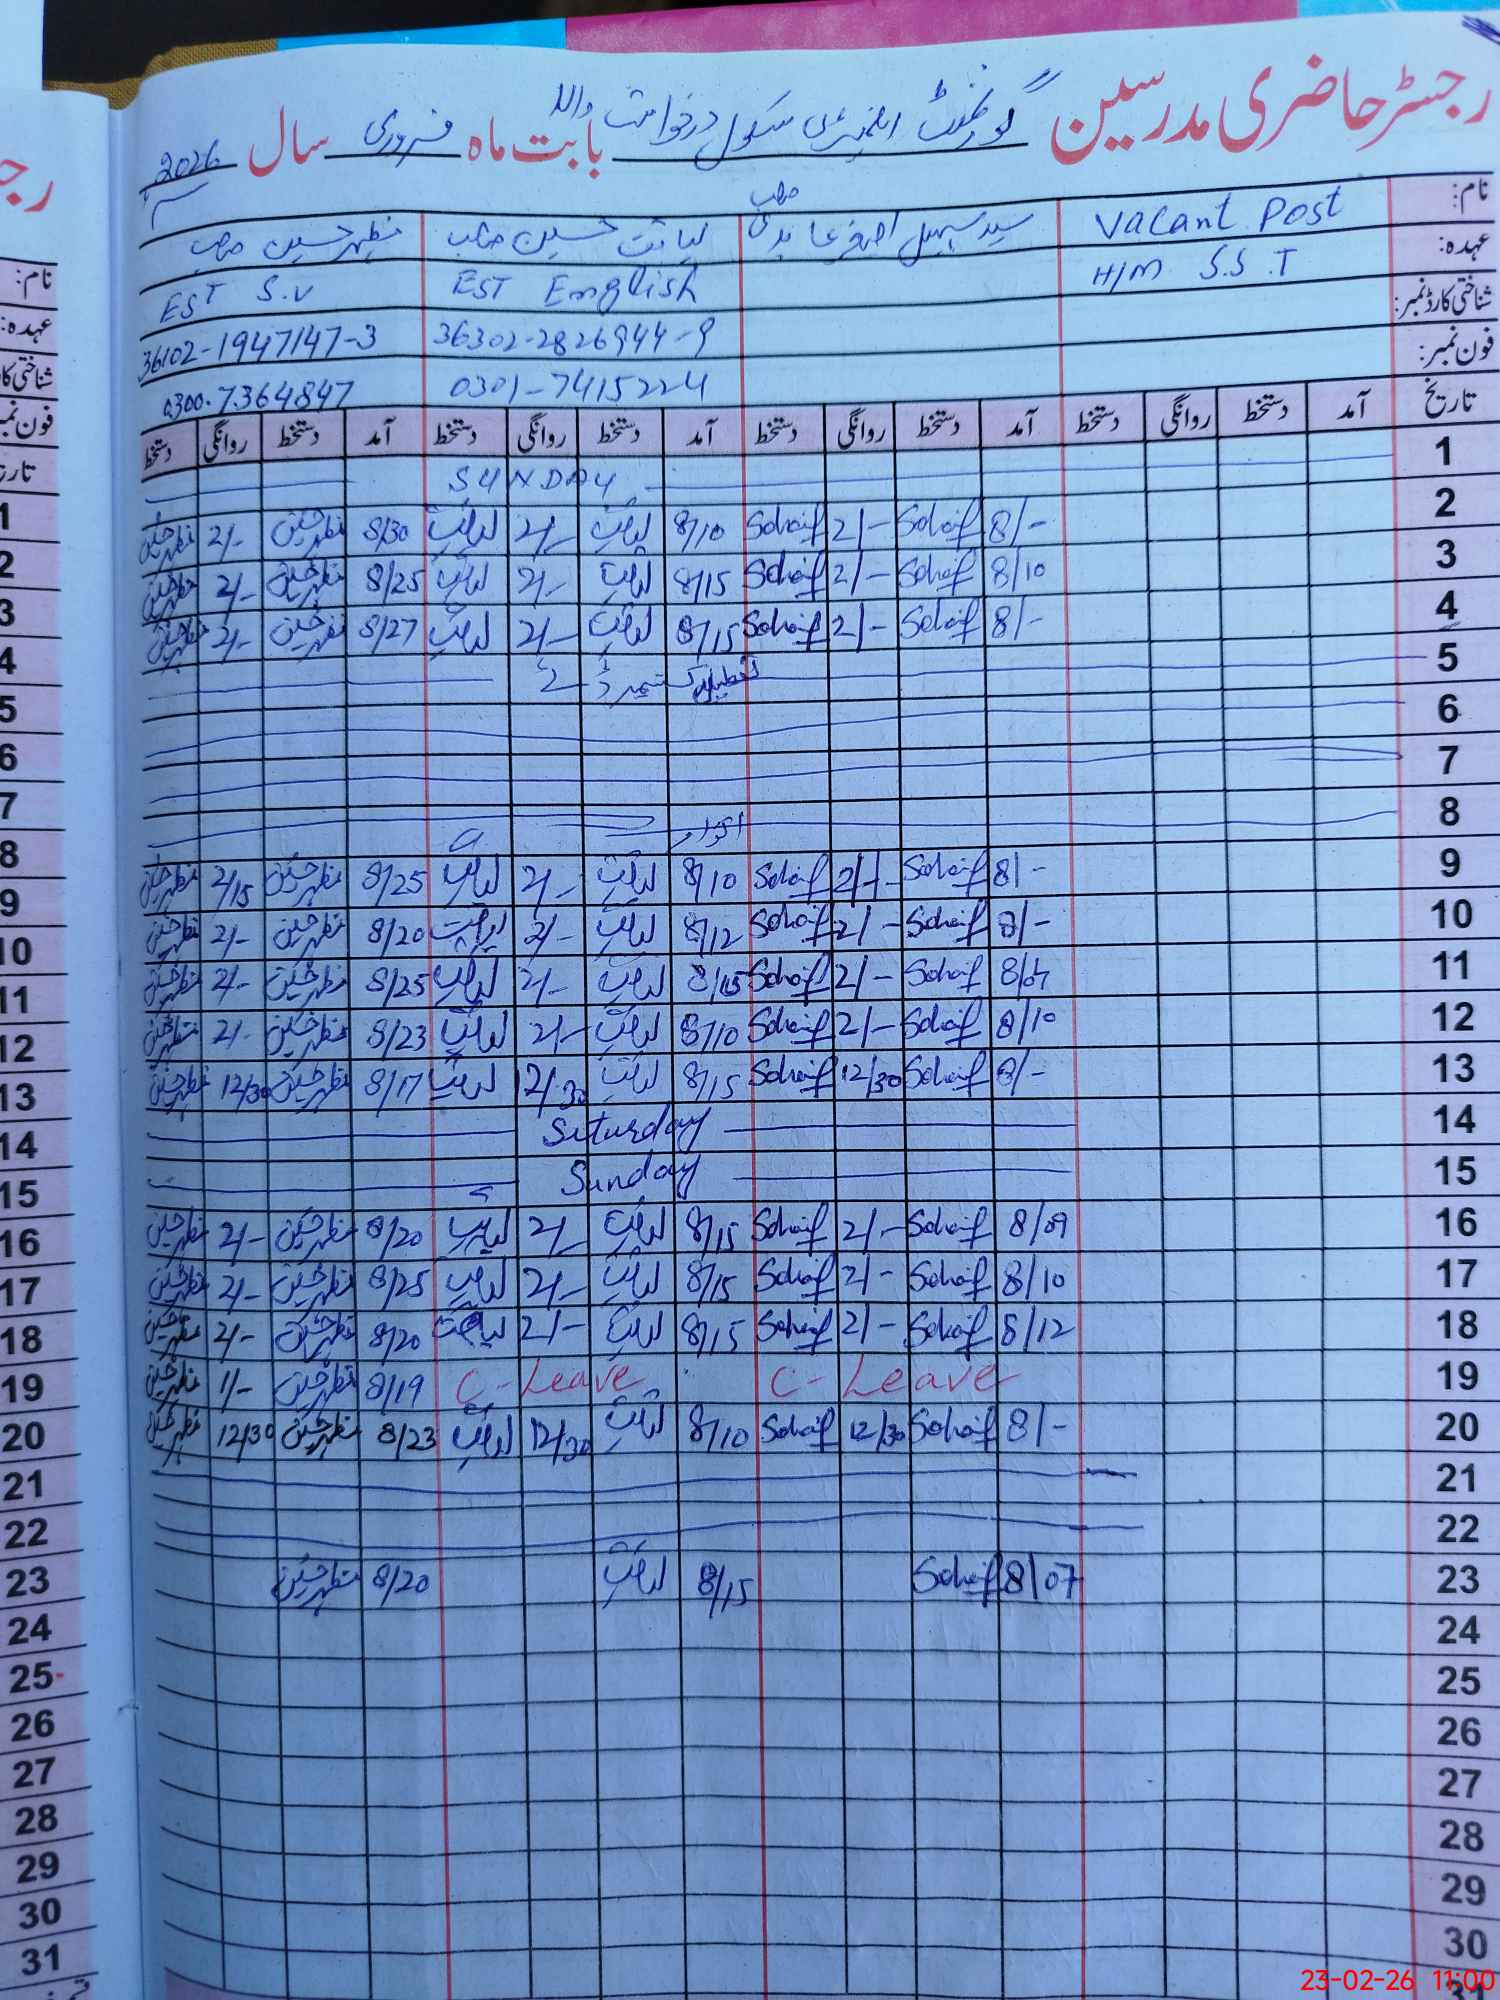 رجسٹر حاضری مدرسین گورنمنٹ ایلیمنٹری سکول درخواست والا بابت ماہ فروری سال 2026
نام: Vacant Post سید سہیل اصغر عابدی صاحب لیاقت حسین صاحب مظہر حسین صاحب
عہدہ: H/M S.S.T EST English EST S.V
شناختی کارڈ نمبر: 36302-2826944-9 36102-1947147-3
فون نمبر: 0301-7415224 0300-7364847
تاریخ آمد دستخط روانگی دستخط آمد دستخط روانگی دستخط آمد دستخط روانگی دستخط آمد دستخط روانگی دستخط
1 SUNDAY
2 8/- Sohaif 2/- Sohaif 8/10 لیاقت 2/- لیاقت 8/30 مظہر حسین 2/- مظہر حسین
3 8/10 Sohaif 2/- Sohaif 8/15 لیاقت 2/- لیاقت 8/25 مظہر حسین 2/- مظہر حسین
4 8/- Sohaif 2/- Sohaif 8/15 لیاقت 2/- لیاقت 8/27 مظہر حسین 2/- مظہر حسین
5
6
7
8 اتوار
9 8/- Sohaif 2/- Sohaif 8/10 لیاقت 2/- لیاقت 8/25 مظہر حسین 2/15 مظہر حسین
10 8/- Sohaif 2/- Sohaif 8/12 لیاقت 2/- لیاقت 8/20 مظہر حسین 2/- مظہر حسین
11 8/07 Sohaif 2/- Sohaif 8/15 لیاقت 2/- لیاقت 8/25 مظہر حسین 2/- مظہر حسین
12 8/10 Sohaif 2/- Sohaif 8/10 لیاقت 2/- لیاقت 8/23 مظہر حسین 2/- مظہر حسین
13 8/- Sohaif 12/30 Sohaif 8/15 لیاقت 12/30 لیاقت 8/17 مظہر حسین 12/30 مظہر حسین
14 Saturday
15 Sunday
16 8/09 Sohaif 2/- Sohaif 8/15 لیاقت 2/- لیاقت 8/20 مظہر حسین 2/- مظہر حسین
17 8/10 Sohaif 2/- Sohaif 8/15 لیاقت 2/- لیاقت 8/25 مظہر حسین 2/- مظہر حسین
18 8/12 Sohaif 2/- Sohaif 8/15 لیاقت 2/- لیاقت 8/20 مظہر حسین 2/- مظہر حسین
19 C-Leave C-Leave 8/19 مظہر حسین 1/- مظہر حسین
20 8/- Sohaif 12/30 Sohaif 8/10 لیاقت 12/30 لیاقت 8/23 مظہر حسین 12/30 مظہر حسین
21
22
23 8/07 Sohaif 8/15 لیاقت 8/20 مظہر حسین
24
25
26
27
28
29
30
31
نام:
عہدہ:
1
2
3
4
5
6
7
8
9
10
11
12
13
14
15
16
17
18
19
20
21
22
23
24
25
26
27
28
29
30
31
23-02-26 11:00